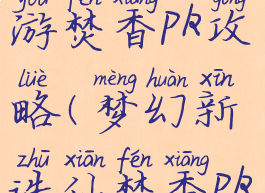 yóu fén xiāng gōng
游焚香PK攻
lüè mèng huàn xīn
略(梦幻新
zhū xiān fén xiāng
诛仙焚香PK